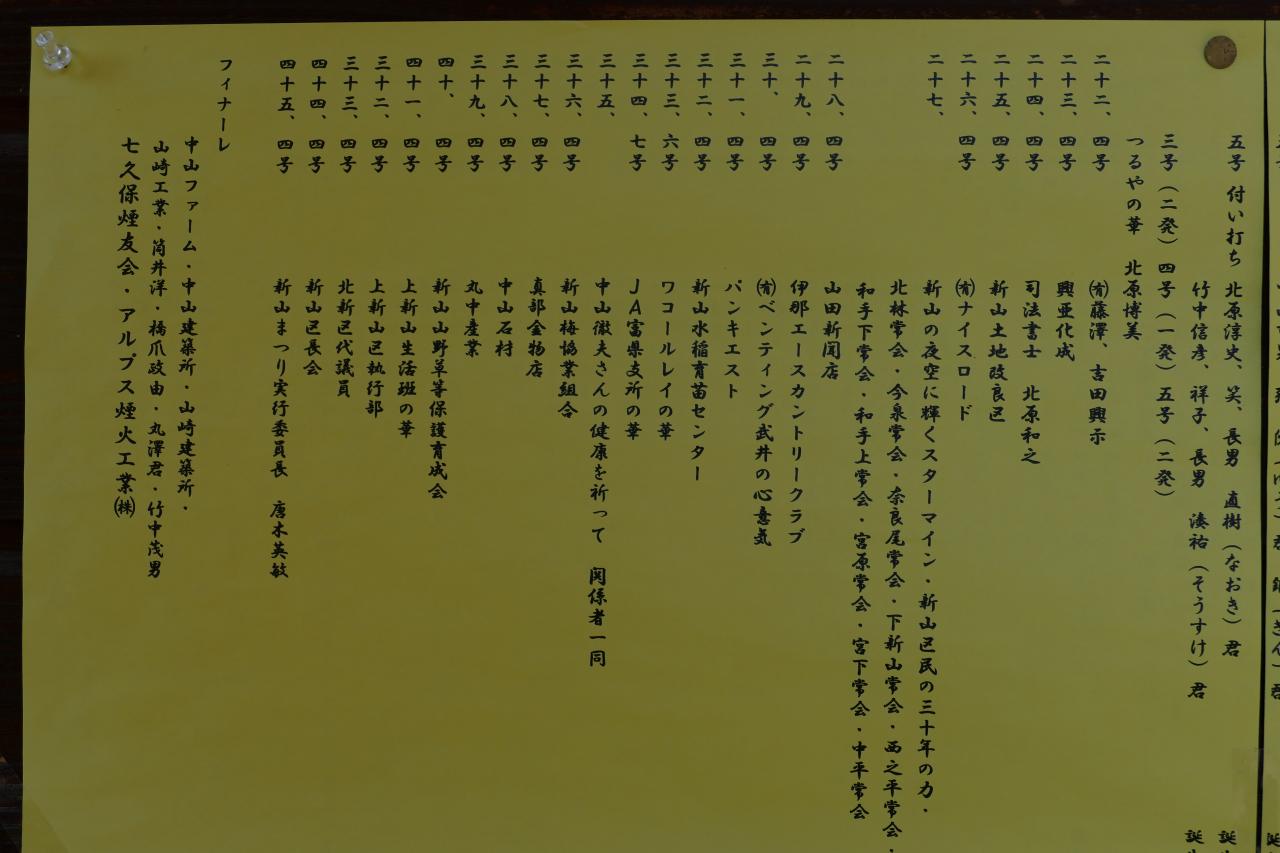 五号 付い打ち 北原淳史、笑、長男 直樹(なおき)君 誕
竹中信彦、祥子、長男 湊祐(そうすけ)君 誕
三号(二発)四号(一発)五号(二発)
つるやの華 北原博美
二十二、四号 ㈲藤澤、吉田興示
二十三、四号 興亜化成
二十四、四号 司法書士 北原和之
二十五、四号 新山土地改良区
二十六、四号 ㈲ナイスロード
二十七、 新山の夜空に輝くスターマイン・新山区民の三十年の力・
北林常会・今泉常会・奈良尾常会・下新山常会・西之平常会・
和手下常会・和手上常会・宮原常会・宮下常会・中平常会
二十八、四号 山田新聞店
二十九、四号 伊那エースカントリークラブ
三十、 四号 ㈲ベンティング武井の心意気
三十一、四号 パンキエスト
三十二、四号 新山水稲育苗センター
三十三、六号 ワコールレイの華
三十四、七号 JA富県支所の華
三十五、 中山徹夫さんの健康を祈って 関係者一同
三十六、四号 新山梅協業組合
三十七、四号 真部金物店
三十八、四号 中山石材
三十九、四号 丸中産業
四十、 四号 新山山野草等保護育成会
四十一、四号 上新山生活班の華
三十二、四号 上新山区執行部
三十三、四号 北新区代議員
四十四、四号 新山区長会
四十五、四号 新山まつり実行委員長 唐木英敏
フィナーレ
中山ファーム・中山建築所・山崎建築所・
山崎工業・筒井洋・橋爪政由・丸澤君・竹中茂男
七久保煙友会・アルプス煙火工業㈱